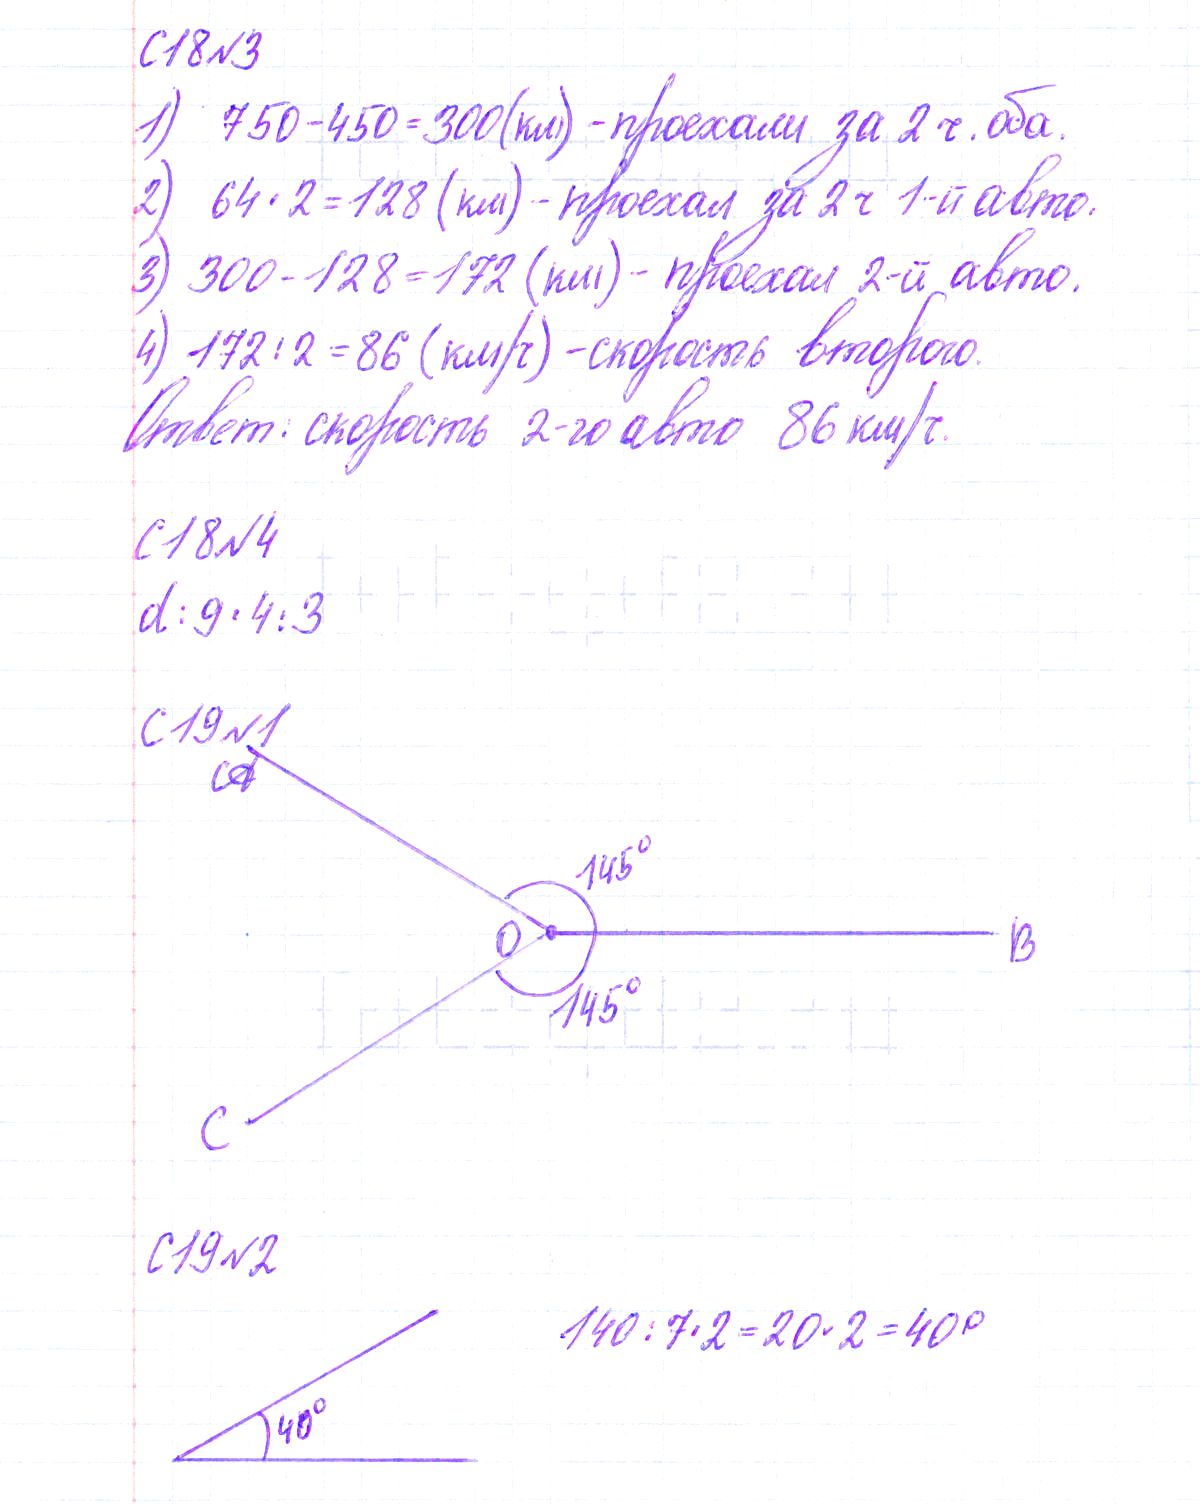 С18№3
1) 750-450=300(км) - проехали за 2 ч. оба.
2) 64·2=128 (км) - проехал за 2 ч 1-й авто.
3) 300-128=172 (км) - проехал 2-й авто.
4) 172:2=86 (км/ч) - скорость второго.
Ответ: скорость 2-го авто 86 км/ч.
С18№4
d:9·4:3
С19№1
145°
O
B
145°
C
С19№2
140:7·2=20·2=40°
40°